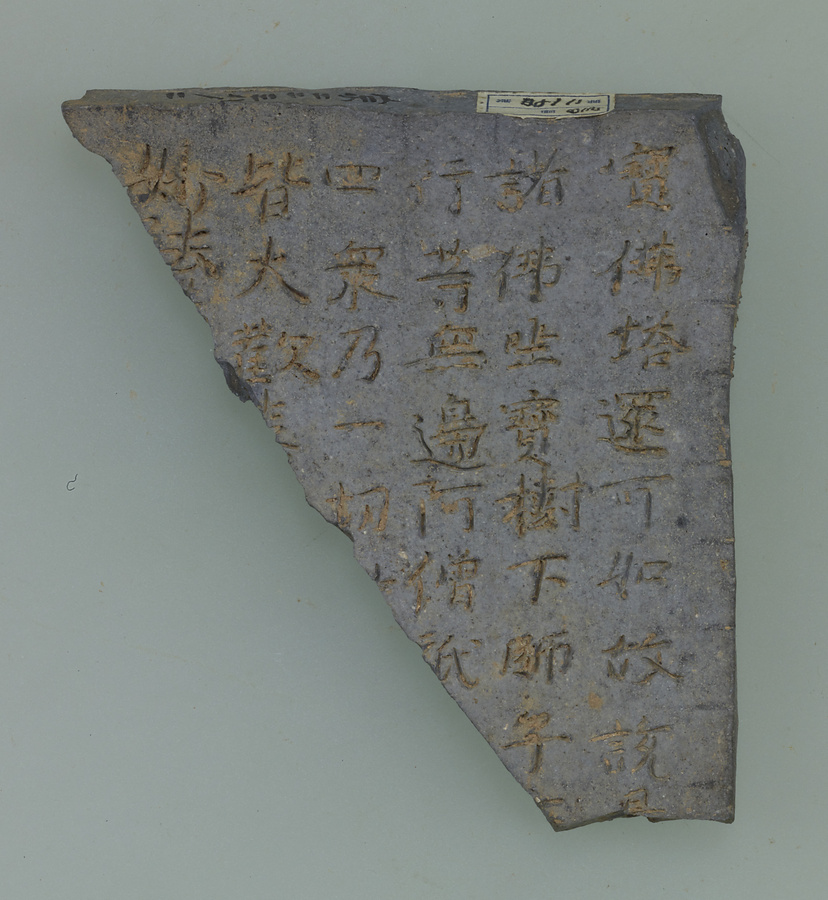 寶佛塔還可如故說是
諸佛㘴寶樹下師子
行等無邊阿僧祇
四衆乃一切
皆大歡喜
妙法